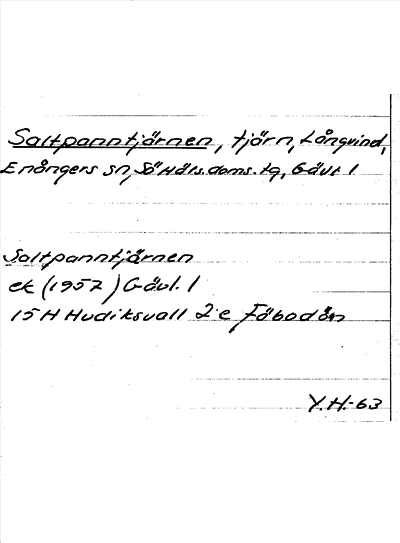 Saltpanntjärnen, tjärn, Långvind,
Enångers sn, Sö Häls. doms. tg, Gävl. l
Saltpanntjärnen
ek (1957) Gävl. l
15 H Hudiksvall 2 e Fäbodön
Y. H.-63